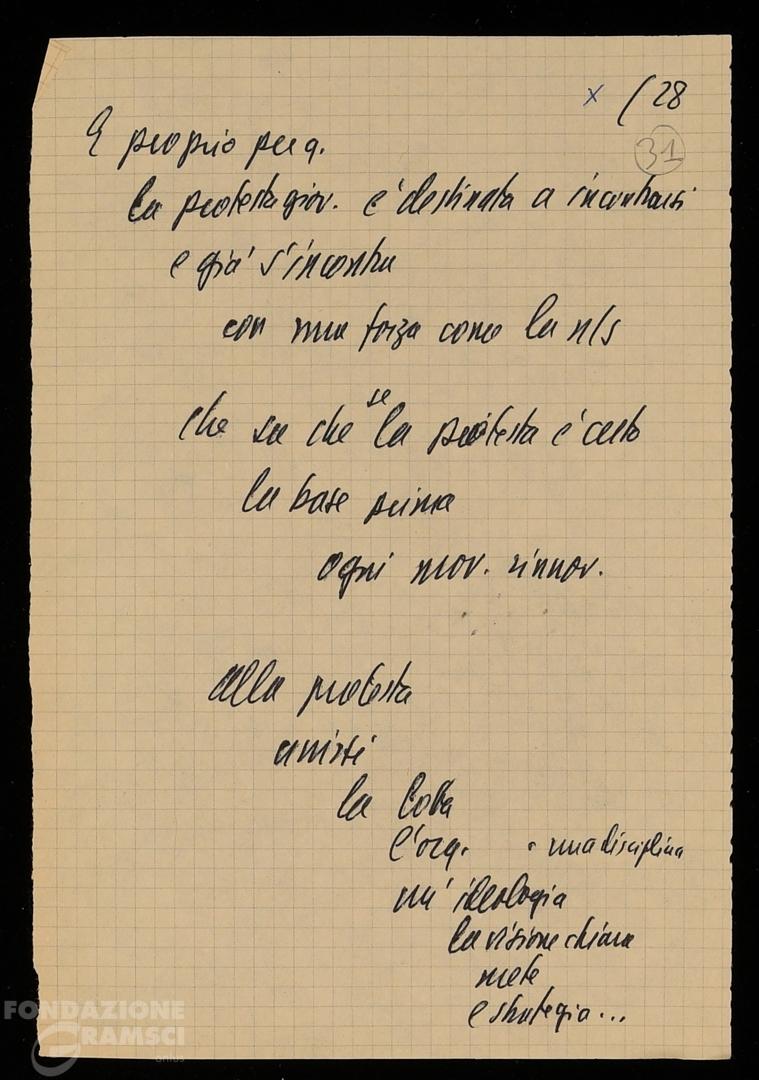 x (28
31
E proprio per q.
la protesta giov. è destinata a incontrarsi
e già s'incontra
con una forza come la n/s
che sa che se la protesta è certo
la base prima
ogni mov. rinnov.
alla protesta
la lotta
l'org. e una disciplina
un'ideologia
la visione chiara
mete
e strategia...
FONDAZIONE
GRAMSCI
onlus